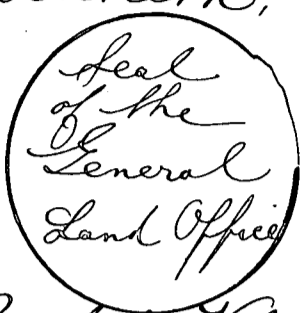 Seal
of the
General
Land Office